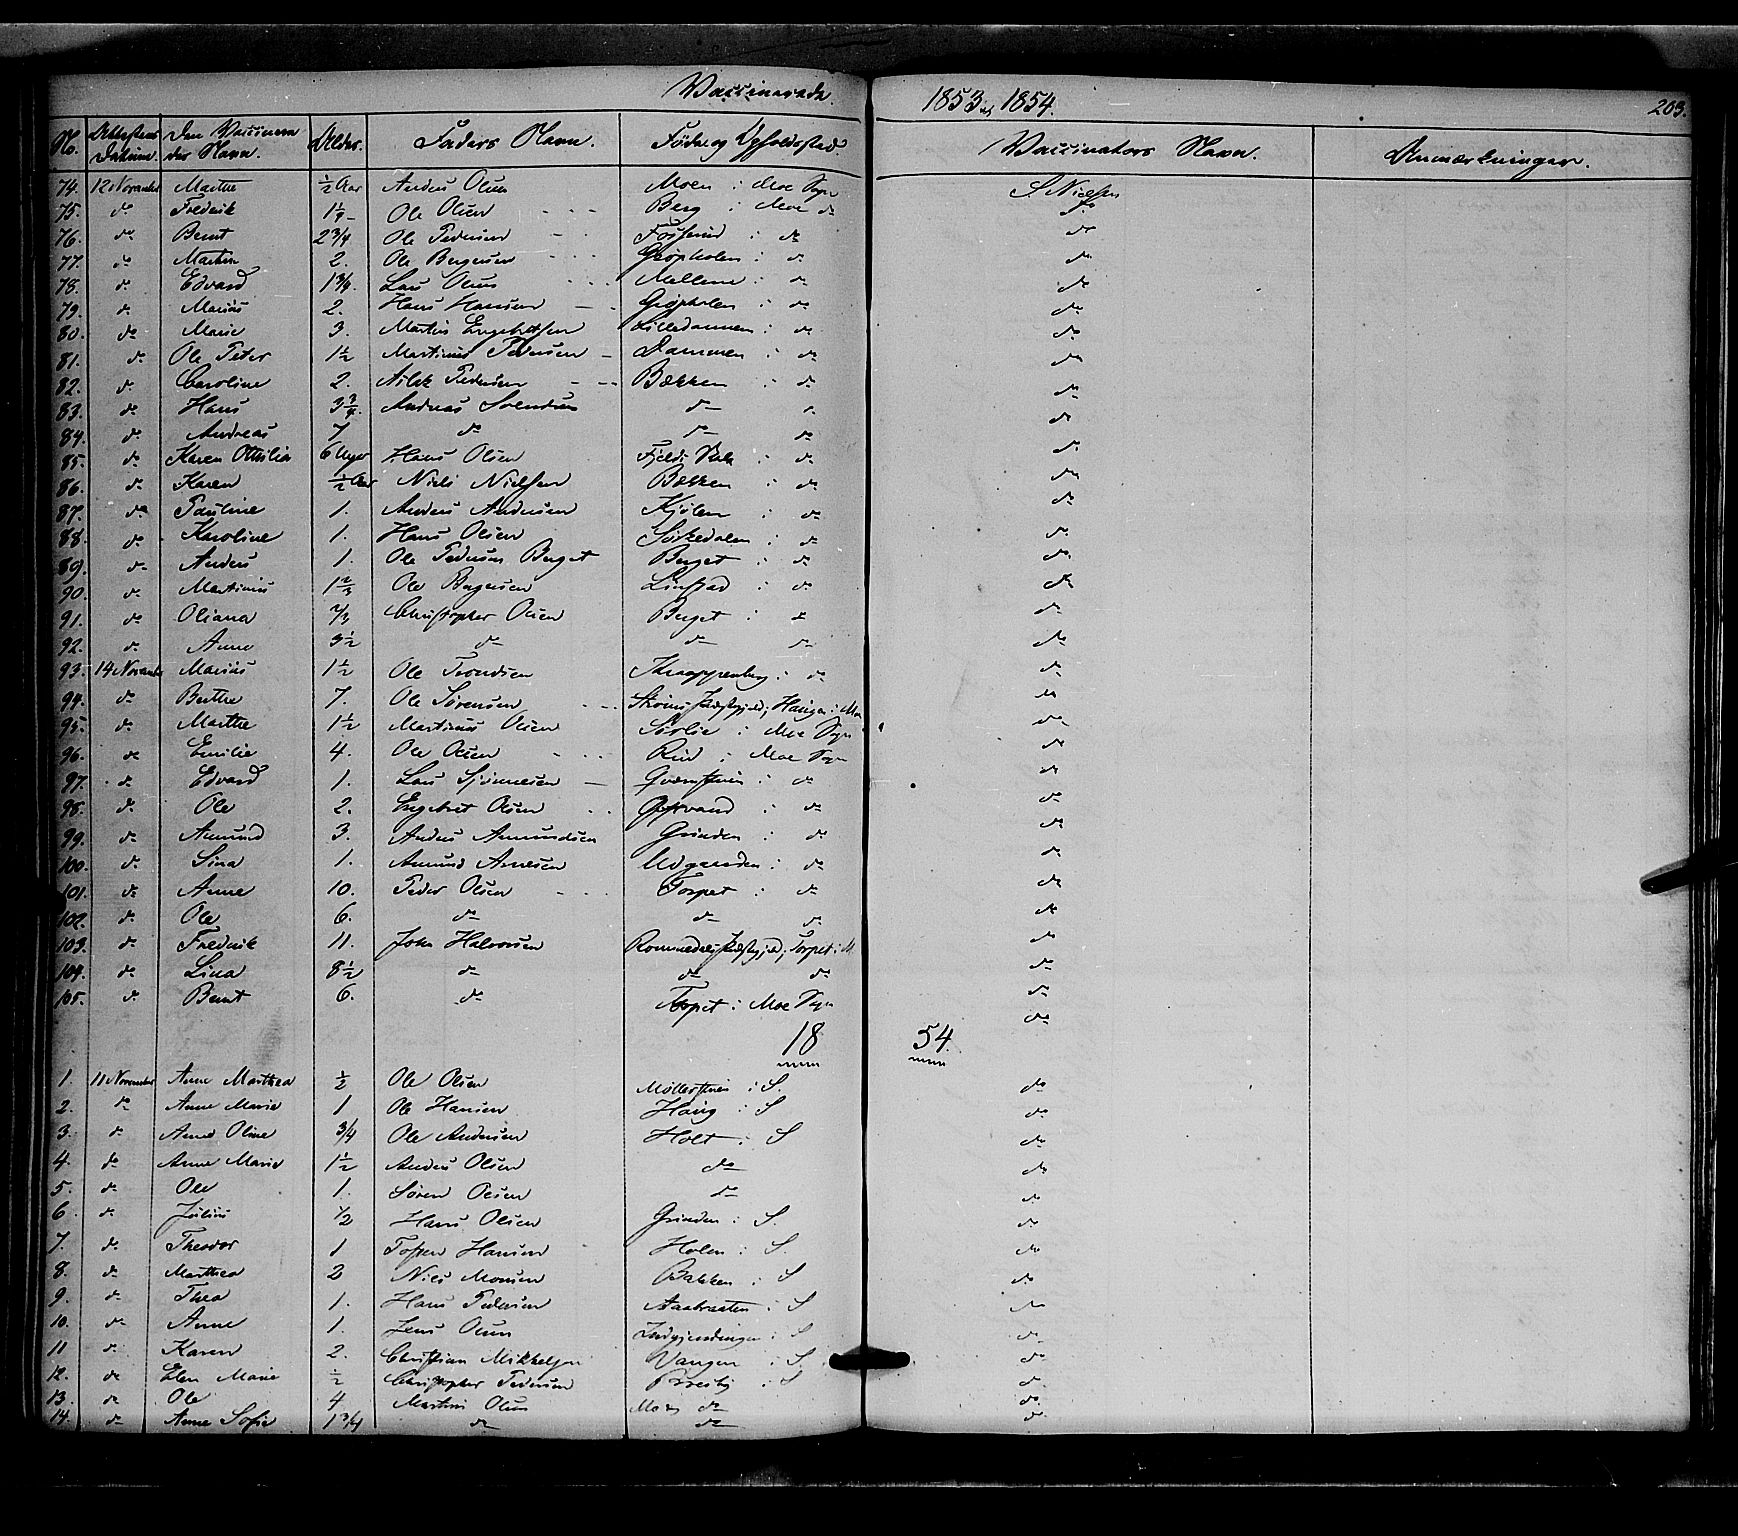 Vaccinerede 1853 og 1854. 203.
No. Attestens Datum. Den Vaccinere der Navn. Alder. Faders Navn. Føde og Opholdssted. Vaccinators Navn. Anmærkninger.
74. 12 November Marthe ½ Aar Anders Olsen Moen i Moe Sogn S. Nielsen
75. do Frederik Ole Olsen Berg i Moe do do
76. do Bernt 2 3/4 Ole Pedersen Fosserud i do do
77. do Marthin 2. Ole Bergersen i do do
78. do Edvard 1 3/4 Lars Olsen i do do
79. do Marius 2. Hans Hansen i do do
80. do Marie 3. Martin Engebretsen Lilledammen i do do
81. do Ole Peter 1½ Martinus Pedersen Dammen i do do
82. do Caroline 2. Pedersen Bækken i do do
83. do Hans 3 3/4. Andreas Svendsen do do do
84. do Andreas 7 do do do do
85. do Karen Othilia 6 Uger Hans Olsen i do do
86. do Karen ½ Aar Niels Nielsen Bækken i do do
87. do Pauline 1. Anders Andersen Kjølen i do do
88. do Karoline 1. Hans Olsen Sørkedalen i do do
89. do Anders 1. Ole Pedersen Berget Berget i do do
90. do Martinius Ole Bergersen i do do
91. do Oliana Christopher Olsen Berget i do do
92. do Anne 3½ do do do do
93. 14 November Marius 1½ Ole Trondsen Knappenberg i do do
94. do Berthe 7. Ole Sørensen Strøms Præstegjeld, Haugen i Moe do
95. do Marthe 1½ Martinus Olsen Sørlie i Moe Sogn do
96. do Emilie 4. Ole Olsen Rud i Moe Sogn do
97. do Edvard 1. Lars i do do
98. do Ole 2. Engebret Olsen i do do
99. do Amund 3. Anders Amundsen Grinden i do do
100. do Sina 1. Amund Arnesen i do do
101. do Anne 10. Peder Olsen Torpet i do do
102. do Ole 6. do do do do
103. do Frederik 11. John Halvorsen Romedals Præstegjeld, Torpet i M. do
104. do Lina 8½ do do do do
105. do Bernt 6. do Torpet i Moe Sogn do
18 54.
1. 11 November Anne Marthea ½ Ole Olsen i S. do
2. do Anne Marie 1 Ole Hansen Haug i S do
3. do Anne Oline 3/4 Ole Andersen Holt i S do
4. do Anne Marie 1½ Anders Olsen do do
5. do Ole 1. Søren Olsen do do
6. do Julius 1/2 Hans Olsen Grinden i S. do
7. do Theodor 1 Hansen Holen i S. do
8. do Marthea 2 Niels Monsen Bakken i S do
9. do Thea 1. Hans Pedersen Aabraaten i S do
10. do Anne 1. Jens Olsen i S do
11 do Karen 2. Christian Mikkelsen Vangen i S. do
12. do Elen Marie ½ Christopher Pedersen i S do
13. do Ole 4 Martin Olsen do do
14. do Anne Sofie 1 3/4 do do do